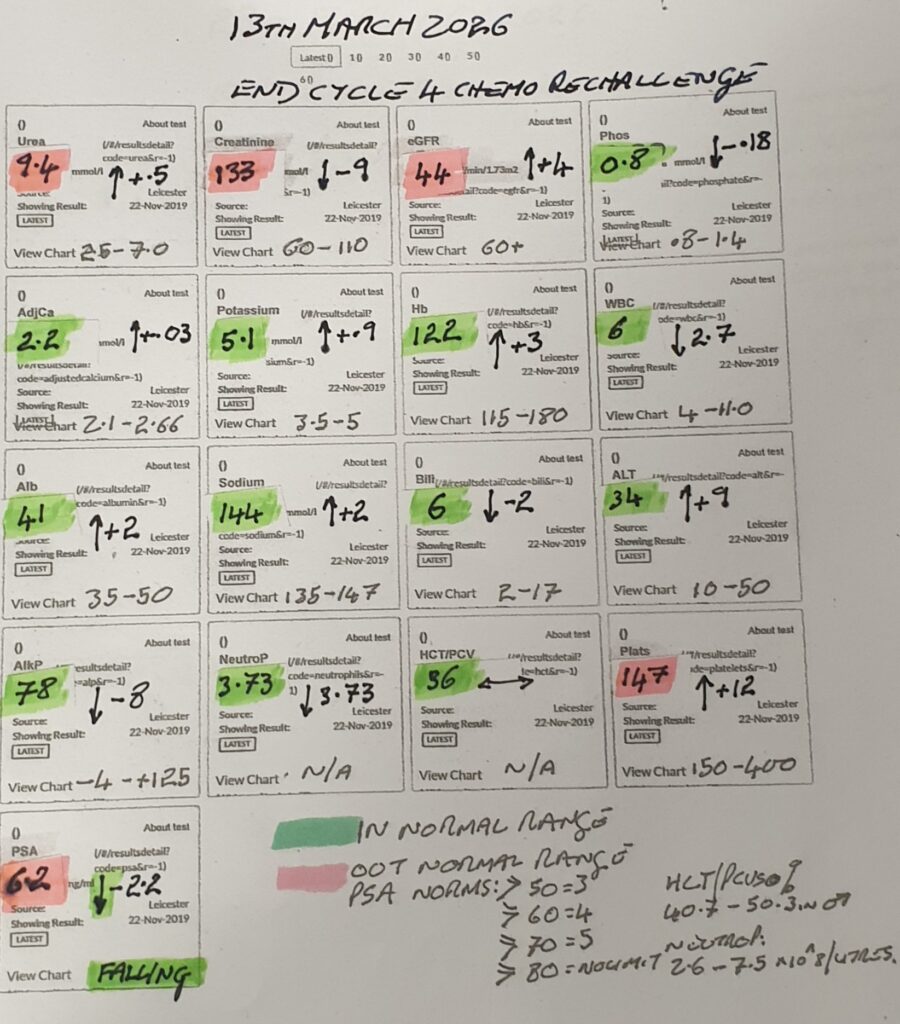 13TH MARCH 2026
Latest() 10 20 30 40 50
60
END CYCLE 4 CHEMO RECHALLENGE
() About test
Urea (/#/resultsdetail?
code=urea&r=-1)
9.4 mmol/l ↑ +.5
Source: Leicester
Showing Result: 22-Nov-2019
LATEST
View Chart 2.5-7.0
() About test
Creatinine (/#/resultsdetail?
133 ↓ -9
&r=-1)
Source: Leicester
Showing Result: 22-Nov-2019
LATEST
View Chart 60-110
() About test
eGFR
44 /min/1.73m2 ↑ +4
ail?code=egfr&r=-1)
Source: Leicester
Showing Result: 22-Nov-2019
LATEST
View Chart 60+
() About test
Phos
0.8 mmol/l ↓ -.18
ail?code=phosphate&r=-
1)
Source: Leicester
Showing Result: 22-Nov-2019
LATEST
View Chart .8-1.4
() About test
AdjCa
2.2 mmol/l ↑ +.03
(/#/resultsdetail?
code=adjustedcalcium&r=-1)
Source: Leicester
Showing Result: 22-Nov-2019
LATEST
View Chart 2.1-2.66
() About test
Potassium
5.1 mmol/l ↑ +.9
sium&r=-1)
Source: Leicester
Showing Result: 22-Nov-2019
LATEST
View Chart 3.5-5
() About test
Hb (/#/resultsdetail?
122 code=hb&r=-1)
↑ +3
Source: Leicester
Showing Result: 22-Nov-2019
LATEST
View Chart 115-180
() About test
WBC (/#/resultsdetail?
6 ode=wbc&r=-1)
↓ 2.7
Source: Leicester
Showing Result: 22-Nov-2019
LATEST
View Chart 4-11.0
() About test
Alb (/#/resultsdetail?
41 code=albumin&r=-1)
↑ +2
Source: Leicester
Showing Result: 22-Nov-2019
LATEST
View Chart 35-50
() About test
Sodium
144 mmol/l ↑ +2
code=sodium&r=-1)
Source: Leicester
Showing Result: 22-Nov-2019
LATEST
View Chart 135-147
() About test
Bili (/#/resultsdetail?code=bili&r=-1)
6 ↓ -2
Source: Leicester
Showing Result: 22-Nov-2019
LATEST
View Chart 2-17
() About test
ALT /resultsdetail?code=alt&r=-
34 ↑ +9
Source: Leicester
Showing Result: 22-Nov-2019
LATEST
View Chart 10-50
() About test
AlkP resultsdetail?
78 =alp&r=-1)
↓ -8
Source: Leicester
Showing Result: 22-Nov-2019
LATEST
View Chart -4-+125
() About test
NeutroP (/#/resultsdetail?
3.73 code=neutrophils&r=-
1) ↓ 3.73
Source: Leicester
Showing Result: 22-Nov-2019
LATEST
View Chart N/A
() About test
HCT/PCV /resultsdetail?
36 le=hct&r=-1)
↔
Source: Leicester
Showing Result: 22-Nov-2019
LATEST
View Chart N/A
() About test
Plats /resultsdetail?
147 de=platelets&r=-1)
↑ +12
Source: Leicester
Showing Result: 22-Nov-2019
LATEST
View Chart 150-400
() About test
PSA (/#/resultsdetail?
code=psa&r=-1)
6.2 ng/ml ↓ -2.2
Source: Leicester
Showing Result: 22-Nov-2019
LATEST
View Chart FALLING
IN NORMAL RANGE
OOT NORMAL RANGE
PSA NORMS: > 50=3
> 60=4
> 70=5
> 80=NOLIMIT
HCT/PCV
40.7-50.3 IN ♂
NEUTROP:
2.6-7.5 x10^8/LITRES.